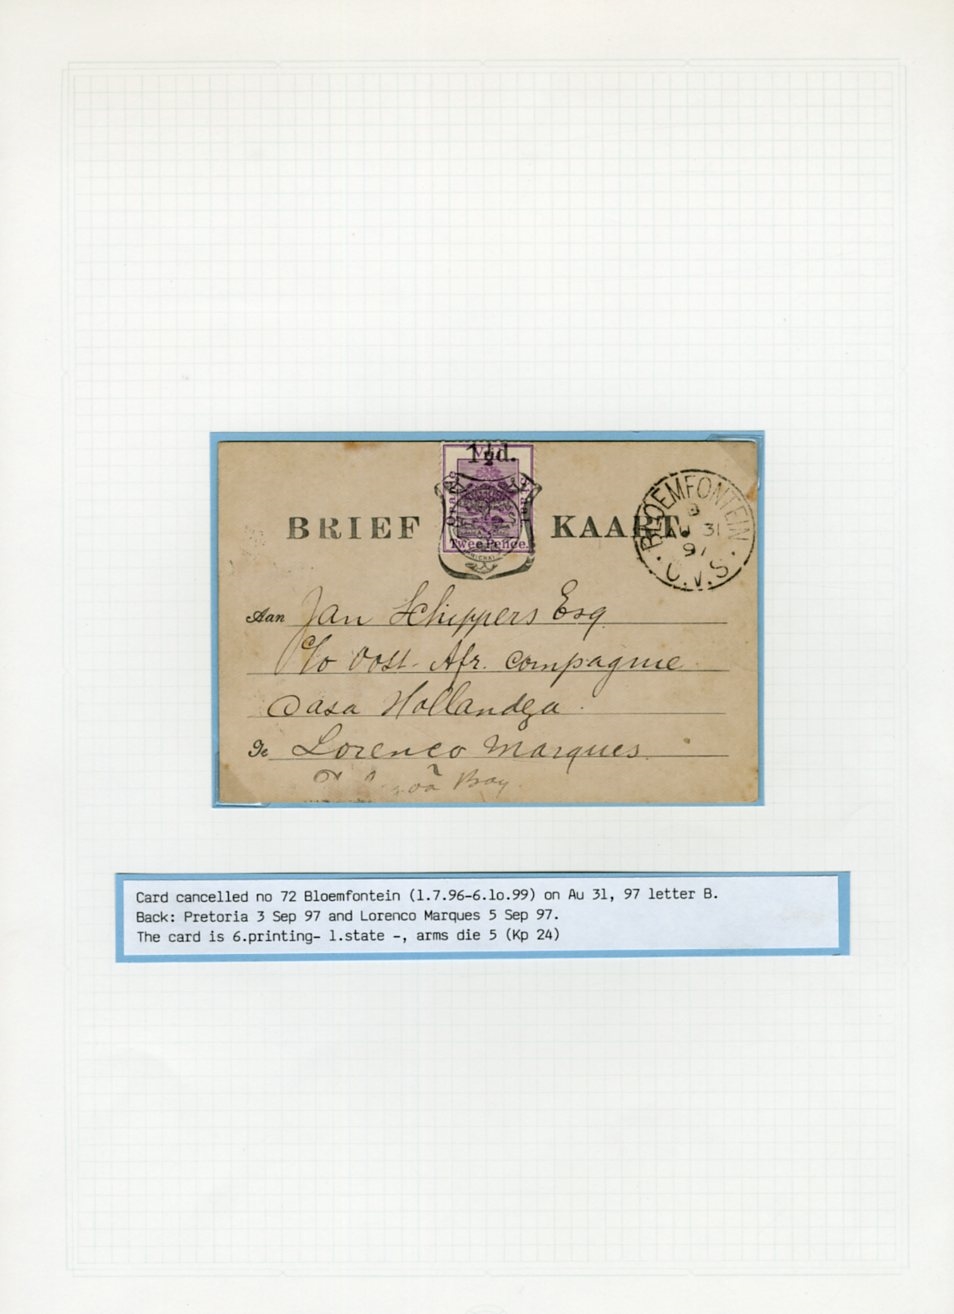 1½d.
Twee Pence.
BRIEF KAART
BLOEMFONTEIN
B
AU 31
97
O.V.S.
Aan Jan Schippers Esq
c/o Oost. Afr. Compagnie
Casa Hollandeza.
Te Lorenco Marques
Bay.
Card cancelled no 72 Bloemfontein (1.7.96-6.1o.99) on Au 31, 97 letter B.
Back: Pretoria 3 Sep 97 and Lorenco Marques 5 Sep 97.
The card is 6.printing- 1.state -, arms die 5 (Kp 24)